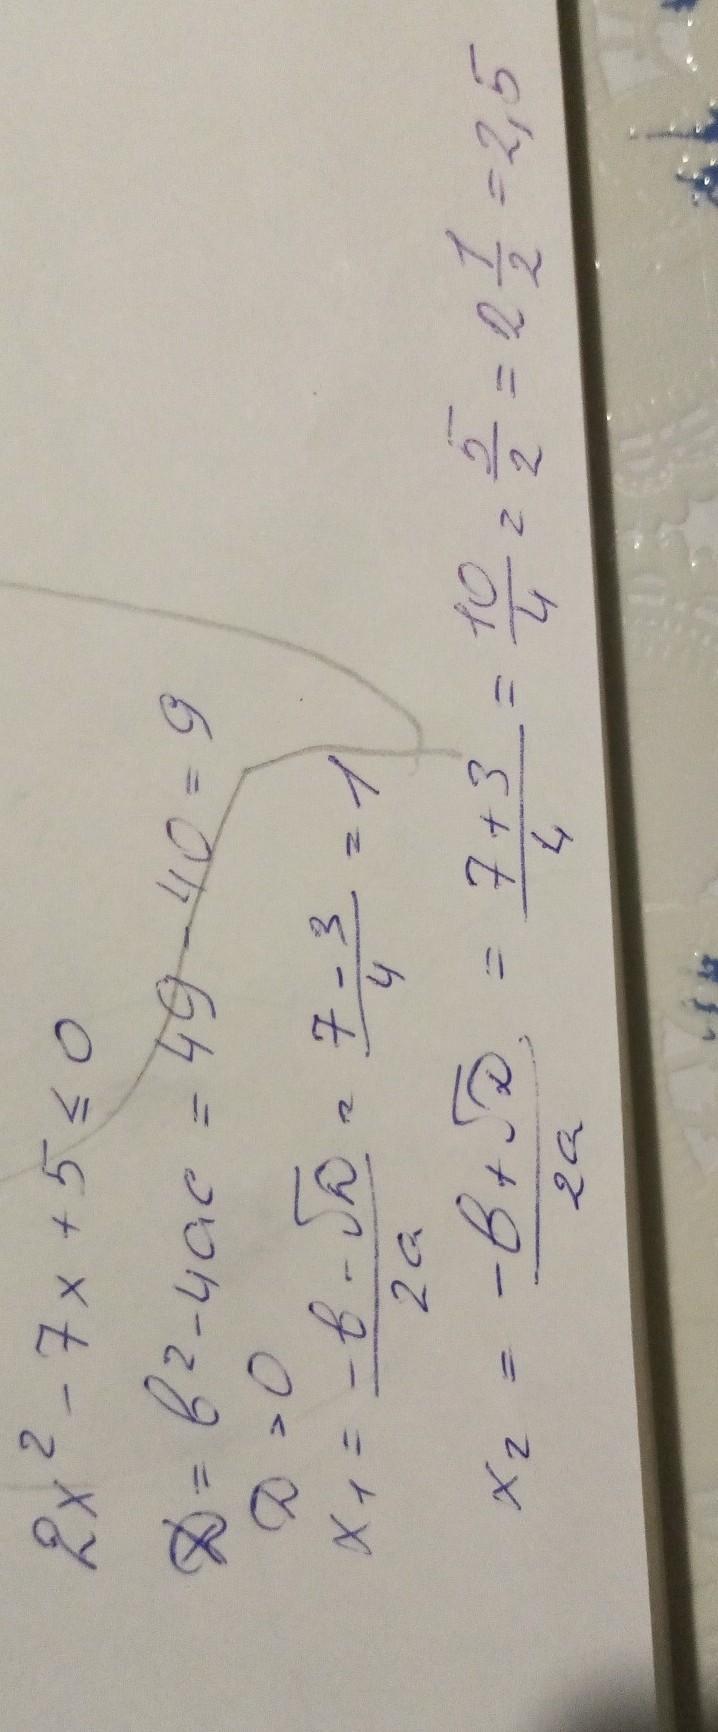 2x² - 7x + 5 ≤ 0
D = b² - 4ac = 49 - 40 = 9
D > 0
x₁ = (-b - √D)/2a = (7 - 3)/4 = 1
x₂ = (-b + √D)/2a = (7 + 3)/4 = 10/4 = 5/2 = 2 1/2 = 2,5